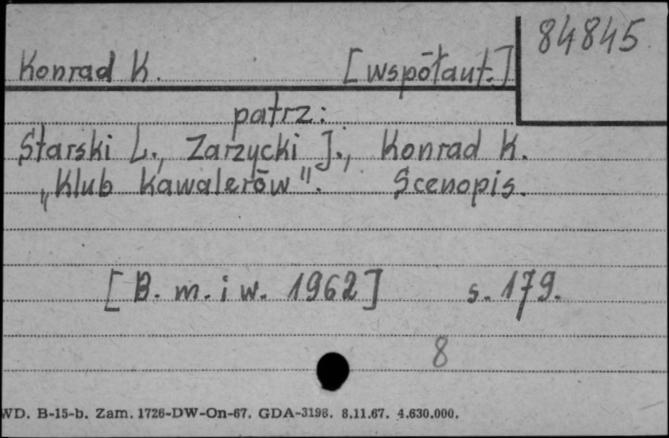 84845
Konrad K. [współaut.]
patrz:
Starski L., Zarzycki J., Konrad K.
„Klub kawalerów". Scenopis.
[B. m. i w. 1962] s. 179.
8
WD. B-15-b. Zam. 1726-DW-On-67. GDA-3198. 8.11.67. 4.630.000.